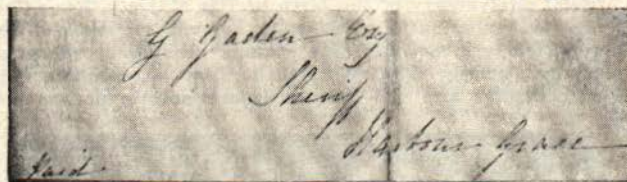 G Gaden Esq
Sheriff
Harbour Grace
Paid.